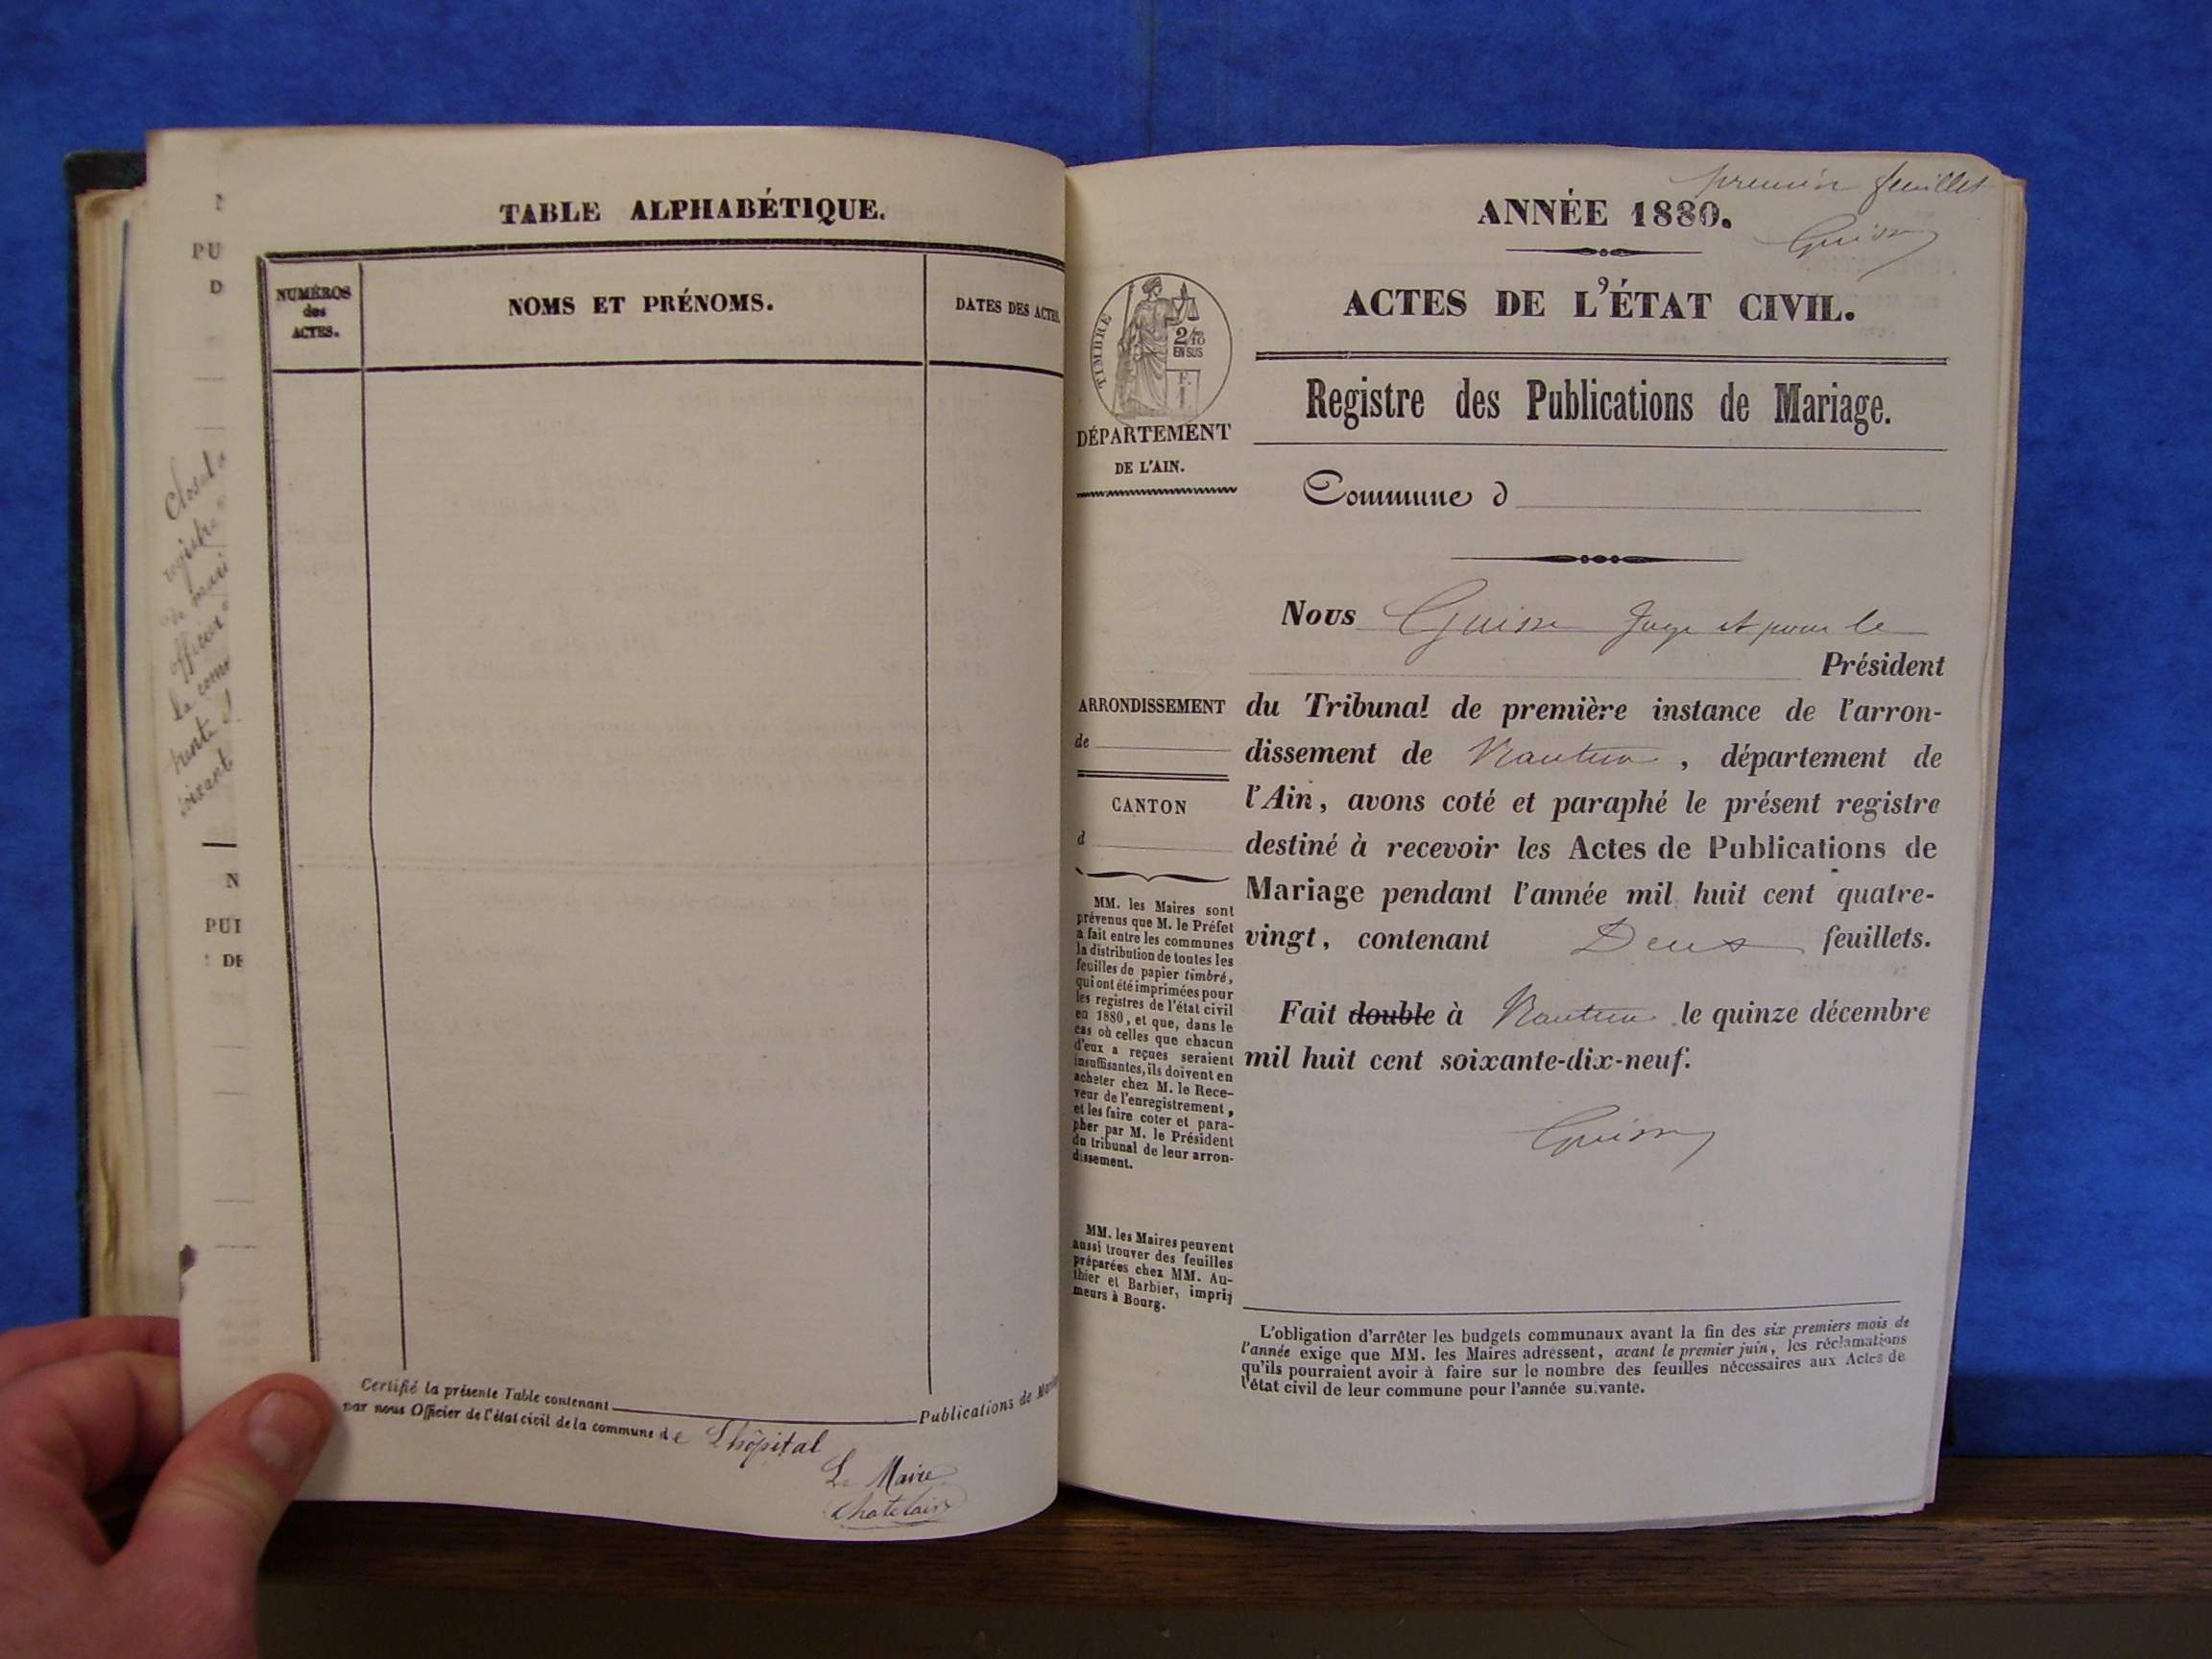 PU
D
Chosel
registre
de mari
officier
La com
trente
soixant
N
PUI
DE
TABLE ALPHABÉTIQUE.
NUMÉROS
des
ACTES.
NOMS ET PRÉNOMS.
DATES DES ACTES
Certifié la présente Table contenant Publications de Maria
par nous Officier de l'état civil de la commune de Lhôpital
Le Maire
Chatelain
premier feuillet
ANNÉE 1880.
ACTES DE L'ÉTAT CIVIL.
TIMBRE
2/10
EN SUS
DÉPARTEMENT
DE L'AIN.
Registre des Publications de Mariage.
Commune d
Nous Juge et pour le
Président
ARRONDISSEMENT
de
CANTON
d
du Tribunal de première instance de l'arron-
dissement de Nantua, département de
l'Ain, avons coté et paraphé le présent registre
destiné à recevoir les Actes de Publications de
Mariage pendant l'année mil huit cent quatre-
vingt, contenant Deux feuillets.
Fait double à Nantua le quinze décembre
mil huit cent soixante-dix-neuf.
MM. les Maires sont
prévenus que M. le Préfet
a fait entre les communes
la distribution de toutes les
feuilles de papier timbré,
qui ont été imprimées pour
les registres de l'état civil
en 1880, et que, dans le
cas où celles que chacun
d'eux a reçues seraient
insuffisantes, ils doivent en
acheter chez M. le Rece-
veur de l'enregistrement,
et les faire coter et para-
pher par M. le Président
du tribunal de leur arron-
dissement.
MM. les Maires peuvent
aussi trouver des feuilles
préparées chez MM. Au-
thier et Barbier, impri-
meurs à Bourg.
L'obligation d'arrêter les budgets communaux avant la fin des six premiers mois de
l'année exige que MM. les Maires adressent, avant le premier juin, les réclamations
qu'ils pourraient avoir à faire sur le nombre des feuilles nécessaires aux Actes de
l'état civil de leur commune pour l'année suivante.